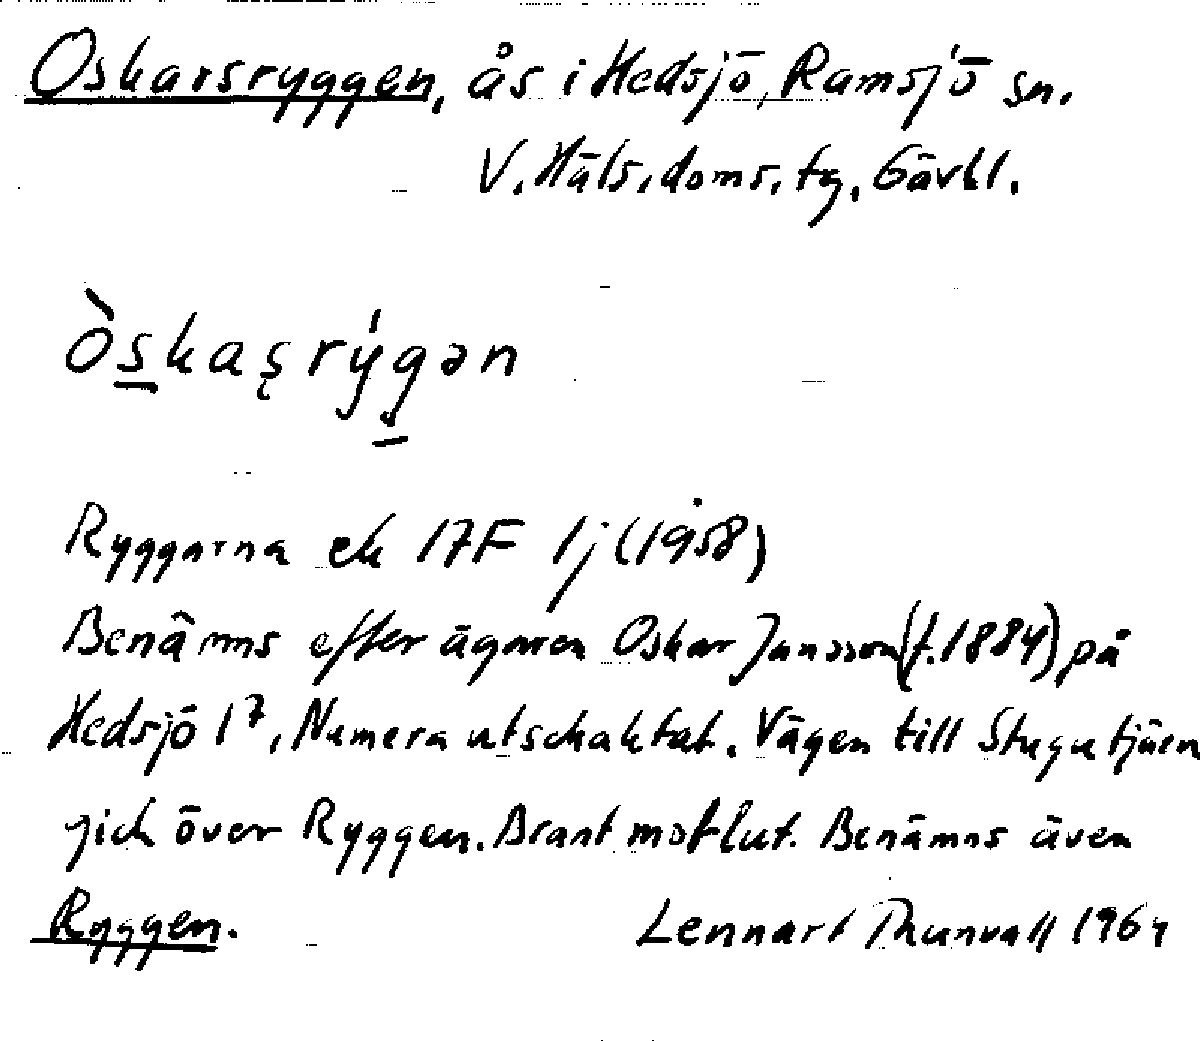 Oskarsryggen, ås i Hedsjö, Ramsjö sn.
V. Häls. doms. tg, Gävbl.
Òskaşrýgən
Ryggarna ek 17F 1j (1958)
Benämns efter ägaren Oskar Jansson (f. 1884) på
Hedsjö 1⁷, Numera utschaktat. Vägen till Stugutjärn
gick över Ryggen. Brant motlut. Benämns även
Ryggen.
Lennart Thunvall 1964